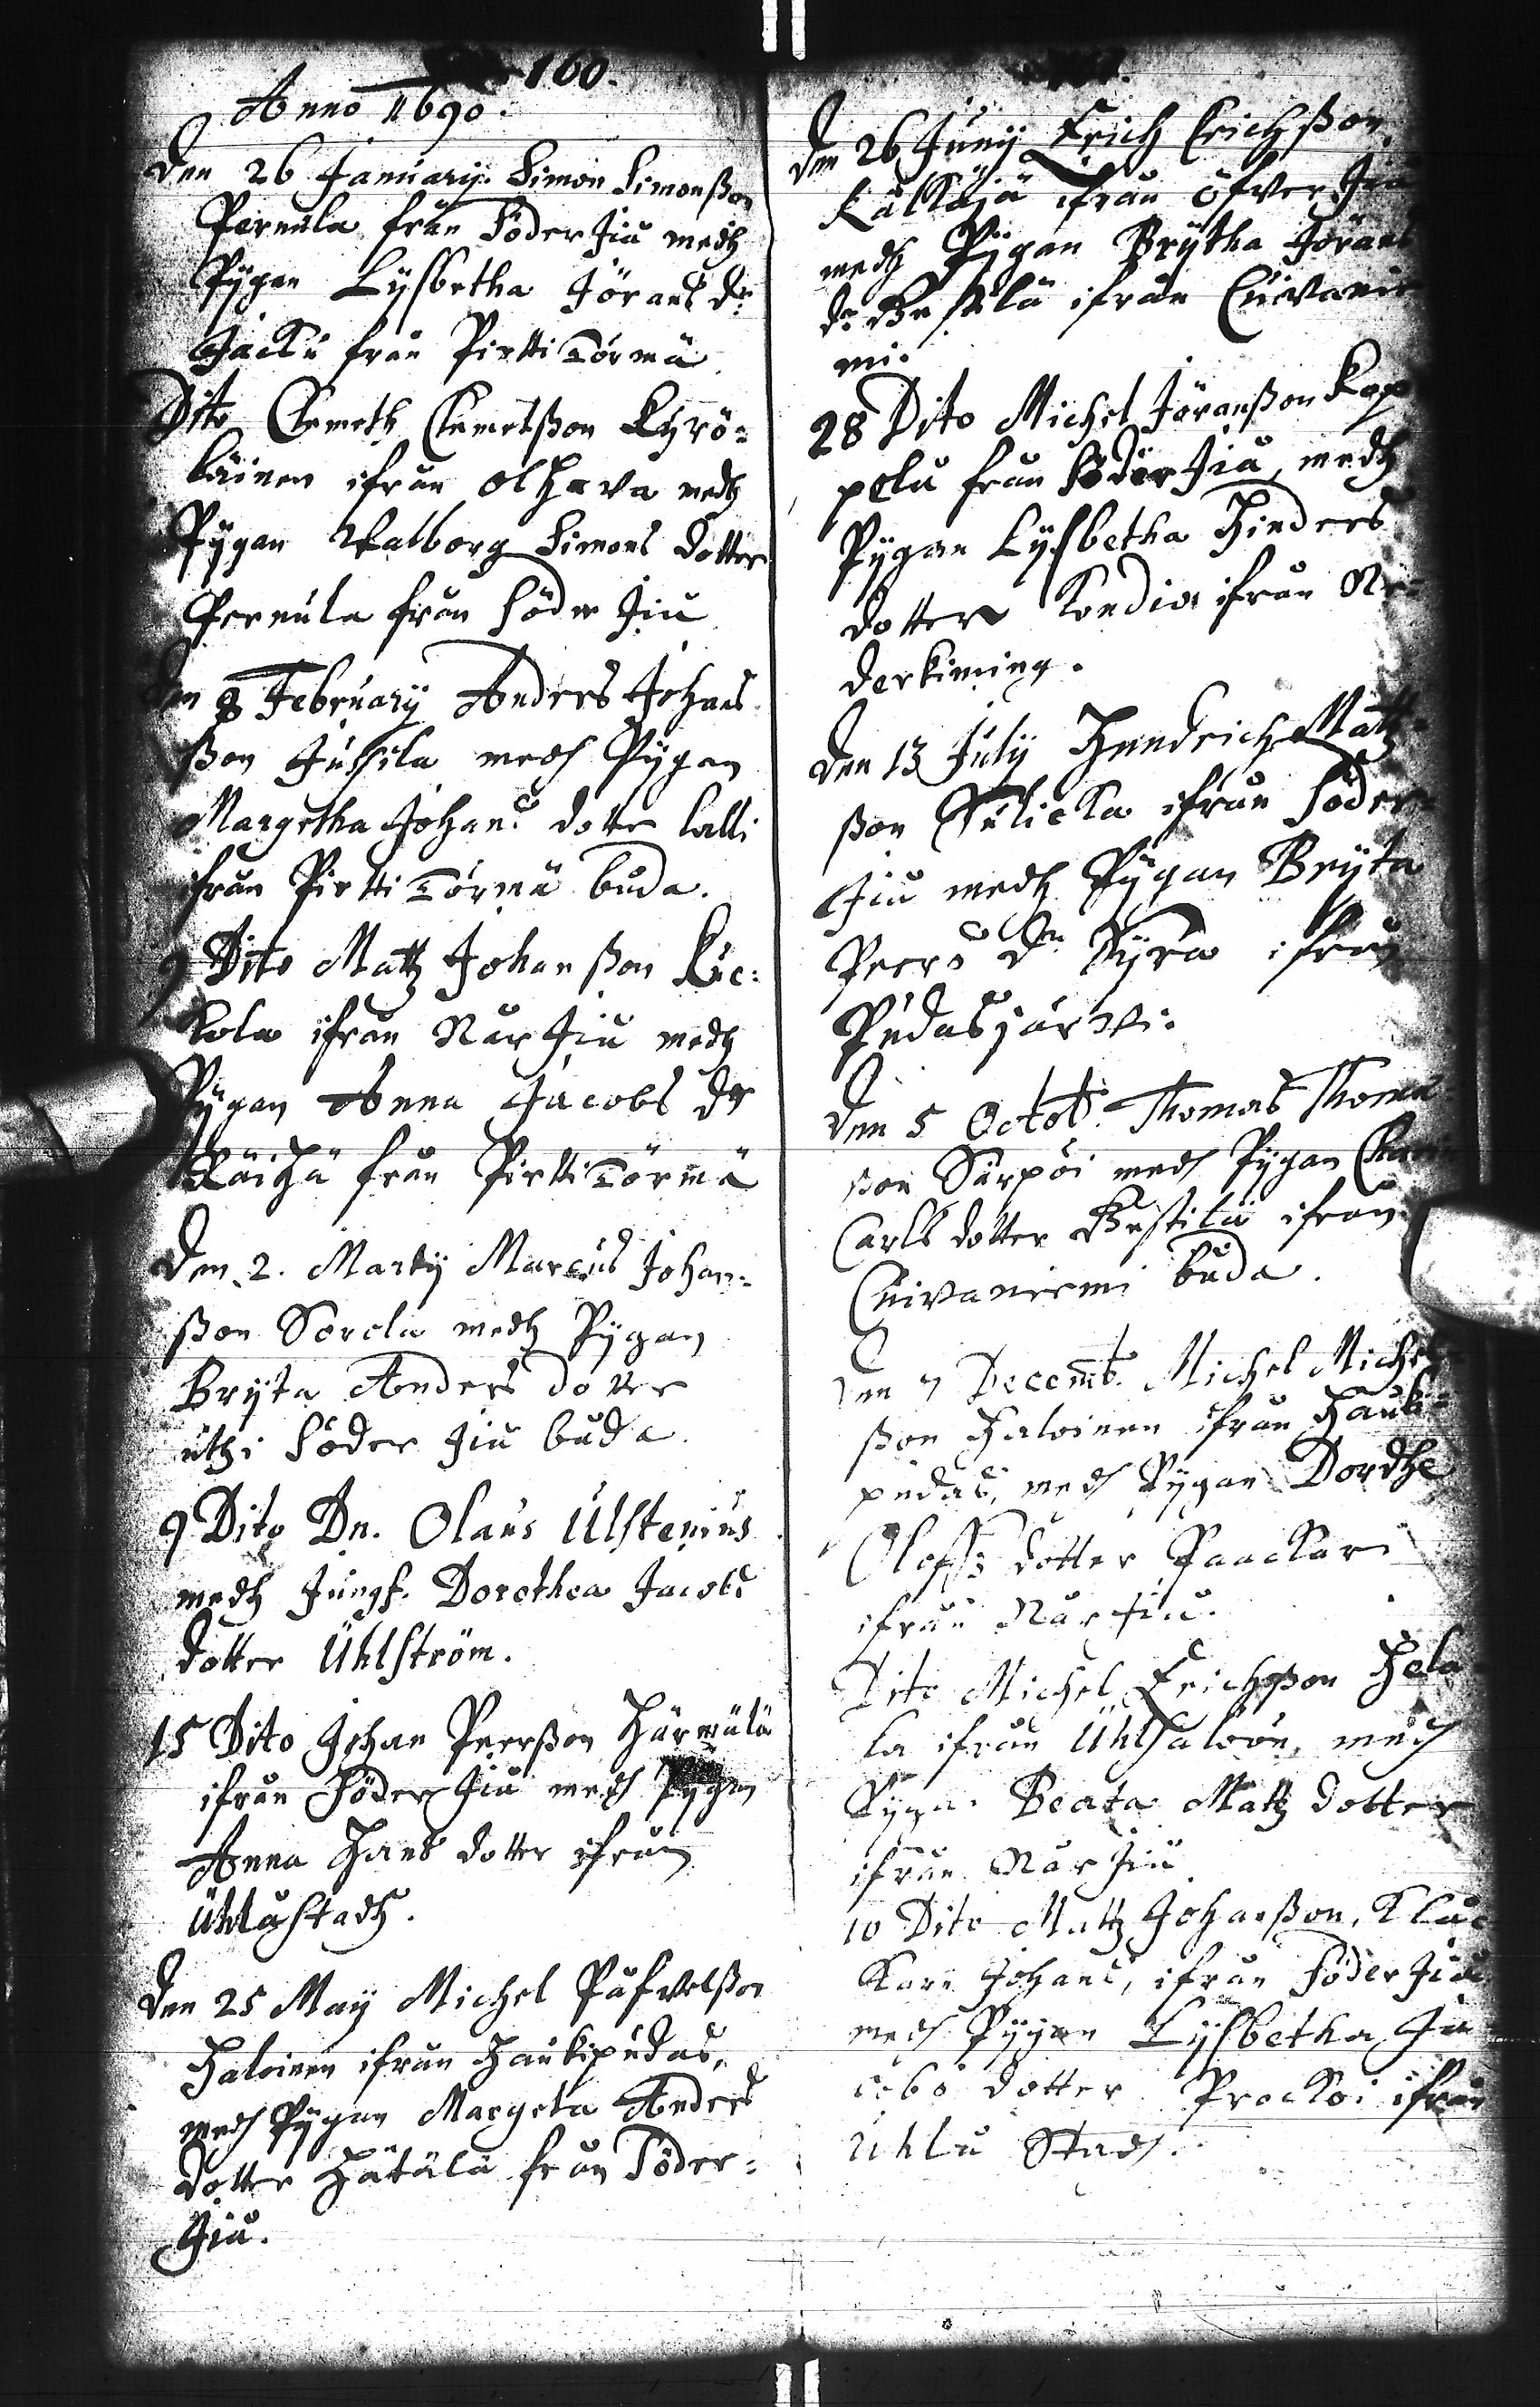 160.
Anno 1690.
Den 26 Januarij. Simon Simonßon
Pernula från Söder Jiu medh
Pÿgan Lÿsbetha Jörans dr
Jacku från Pirttitörmä
Dito Clemeth Clemetßon Kyrö=
läinen ifrån Olhava medh
Pÿgan Walborg Simons dotter
Pernula från Söder Jiu
Den 8 Februarÿ Anders Johans
ßon Jussila medh Pÿgan
Margetha Johans dotter Lalli
ifrån Pirttitörmä buda.
9 Dito Mattz Johanßon Kuc=
kola ifrån Nör Jiu medh
Pÿgan Anna Jacobs dr
Räihä från Pirttitörmä
Den 2. Martÿ Marcus Johan=
ßon Sorela medh Pÿgan
Brÿta Anders dotter
uthi Söder Jiu buda.
9 Dito Dn. Olaus Ulstenius
medh Jungf. Dorothea Jacobs
dotter Uhlström.
15 Dito Johan Peerßon Härmälä
ifrån Söder Jiu medh Pÿgan
Anna Hans dotter ifrån
Uhlåstadh.
Den 25 Maÿ Michel Påfvelßon
Haloinen ifrån Haukipudas,
medh Pÿgan Margeta Anders
dotter Hätälä från Söder=
Jiu.
Den 26 Junÿ Erich Erichßon
ifrån öfver Jiu
medh Pÿgan Brÿtha Jörans
dr ifrån Cuivanie
mi.
28 Dito Michel Jöranßon Kap
pelu från Söder Jiu, medh
Pÿgan Lÿsbetha Hinders
dotter Kondio ifrån Ne=
derkiming.
Den 13 Julÿ Hendrich Matz=
ßon ifrån Söder=
Jiu medh Pÿgan Brÿta
Peers dr Kÿrö ifrån
Pudasjärvi.
Den 5 Octob. Thomas Thoma
ßon Särpöi medh Pÿgan
Carls dotter ifrån
Cuivaniemi buda.
Den 7 Decemb. Michel Michel=
ßon Haloinen ifrån Hauki=
pudas, medh Pÿgan Dordhe
Olofs dotter Paackari
ifrån Nör Jiu.
Dito Michel Erichßon Hela
la ifrån Uhlsaloön, medh
Pÿga. Beata Mattz dotter
ifrån Nör Jiu
10 Dito Mattz Johanßon, Kluc
kare Johans, ifrån Söder Jiu
medh Pÿgan Lÿsbetha Ja
cobs dotter Prockoi ifrån
Uhlu Stadh.